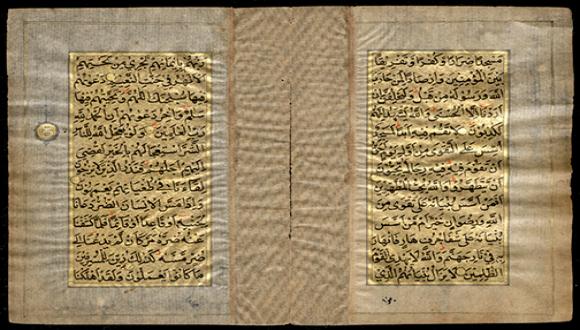 مسجدا ضرارا وكفرا وتفريقا
بين المؤمنين وارصادا لمن حارب
الله ورسوله من قبل وليحلفن ان
اردنا الا الحسنى والله يشهد انهم
لكاذبون لا تقم فيه ابدا لمسجد
اسس على التقوى من اول يوم احق
ان تقوم فيه فيه رجال يحبون
ان يتطهروا والله يحب المطهرين
افمن اسس بنيانه على تقوى من
الله ورضوان خير ام من اسس
بنيانه على شفا جرف هار فانهار
به في نار جهنم والله لا يهدي القوم
الظلمين لا يزال بنيانهم الذي
ربهم بايمانهم تجري من تحتهم
الانهر في جنت النعيم دعويهم
فيها سبحنك اللهم وتحيتهم فيها
سلم واخر دعويهم ان الحمد لله
رب العلمين ولو يعجل الله للناس
الشر استعجالهم بالخير لقضي
اليهم اجلهم فنذر الذين لا يرجون
لقاءنا في طغيانهم يعمهون
واذا مس الانسان الضر دعانا
لجنبه او قاعدا او قائما فلما كشفنا
عنه ضره مر كان لم يدعنا الى
ضر مسه كذلك زين للمسرفين
ما كانوا يعملون ولقد اهلكنا